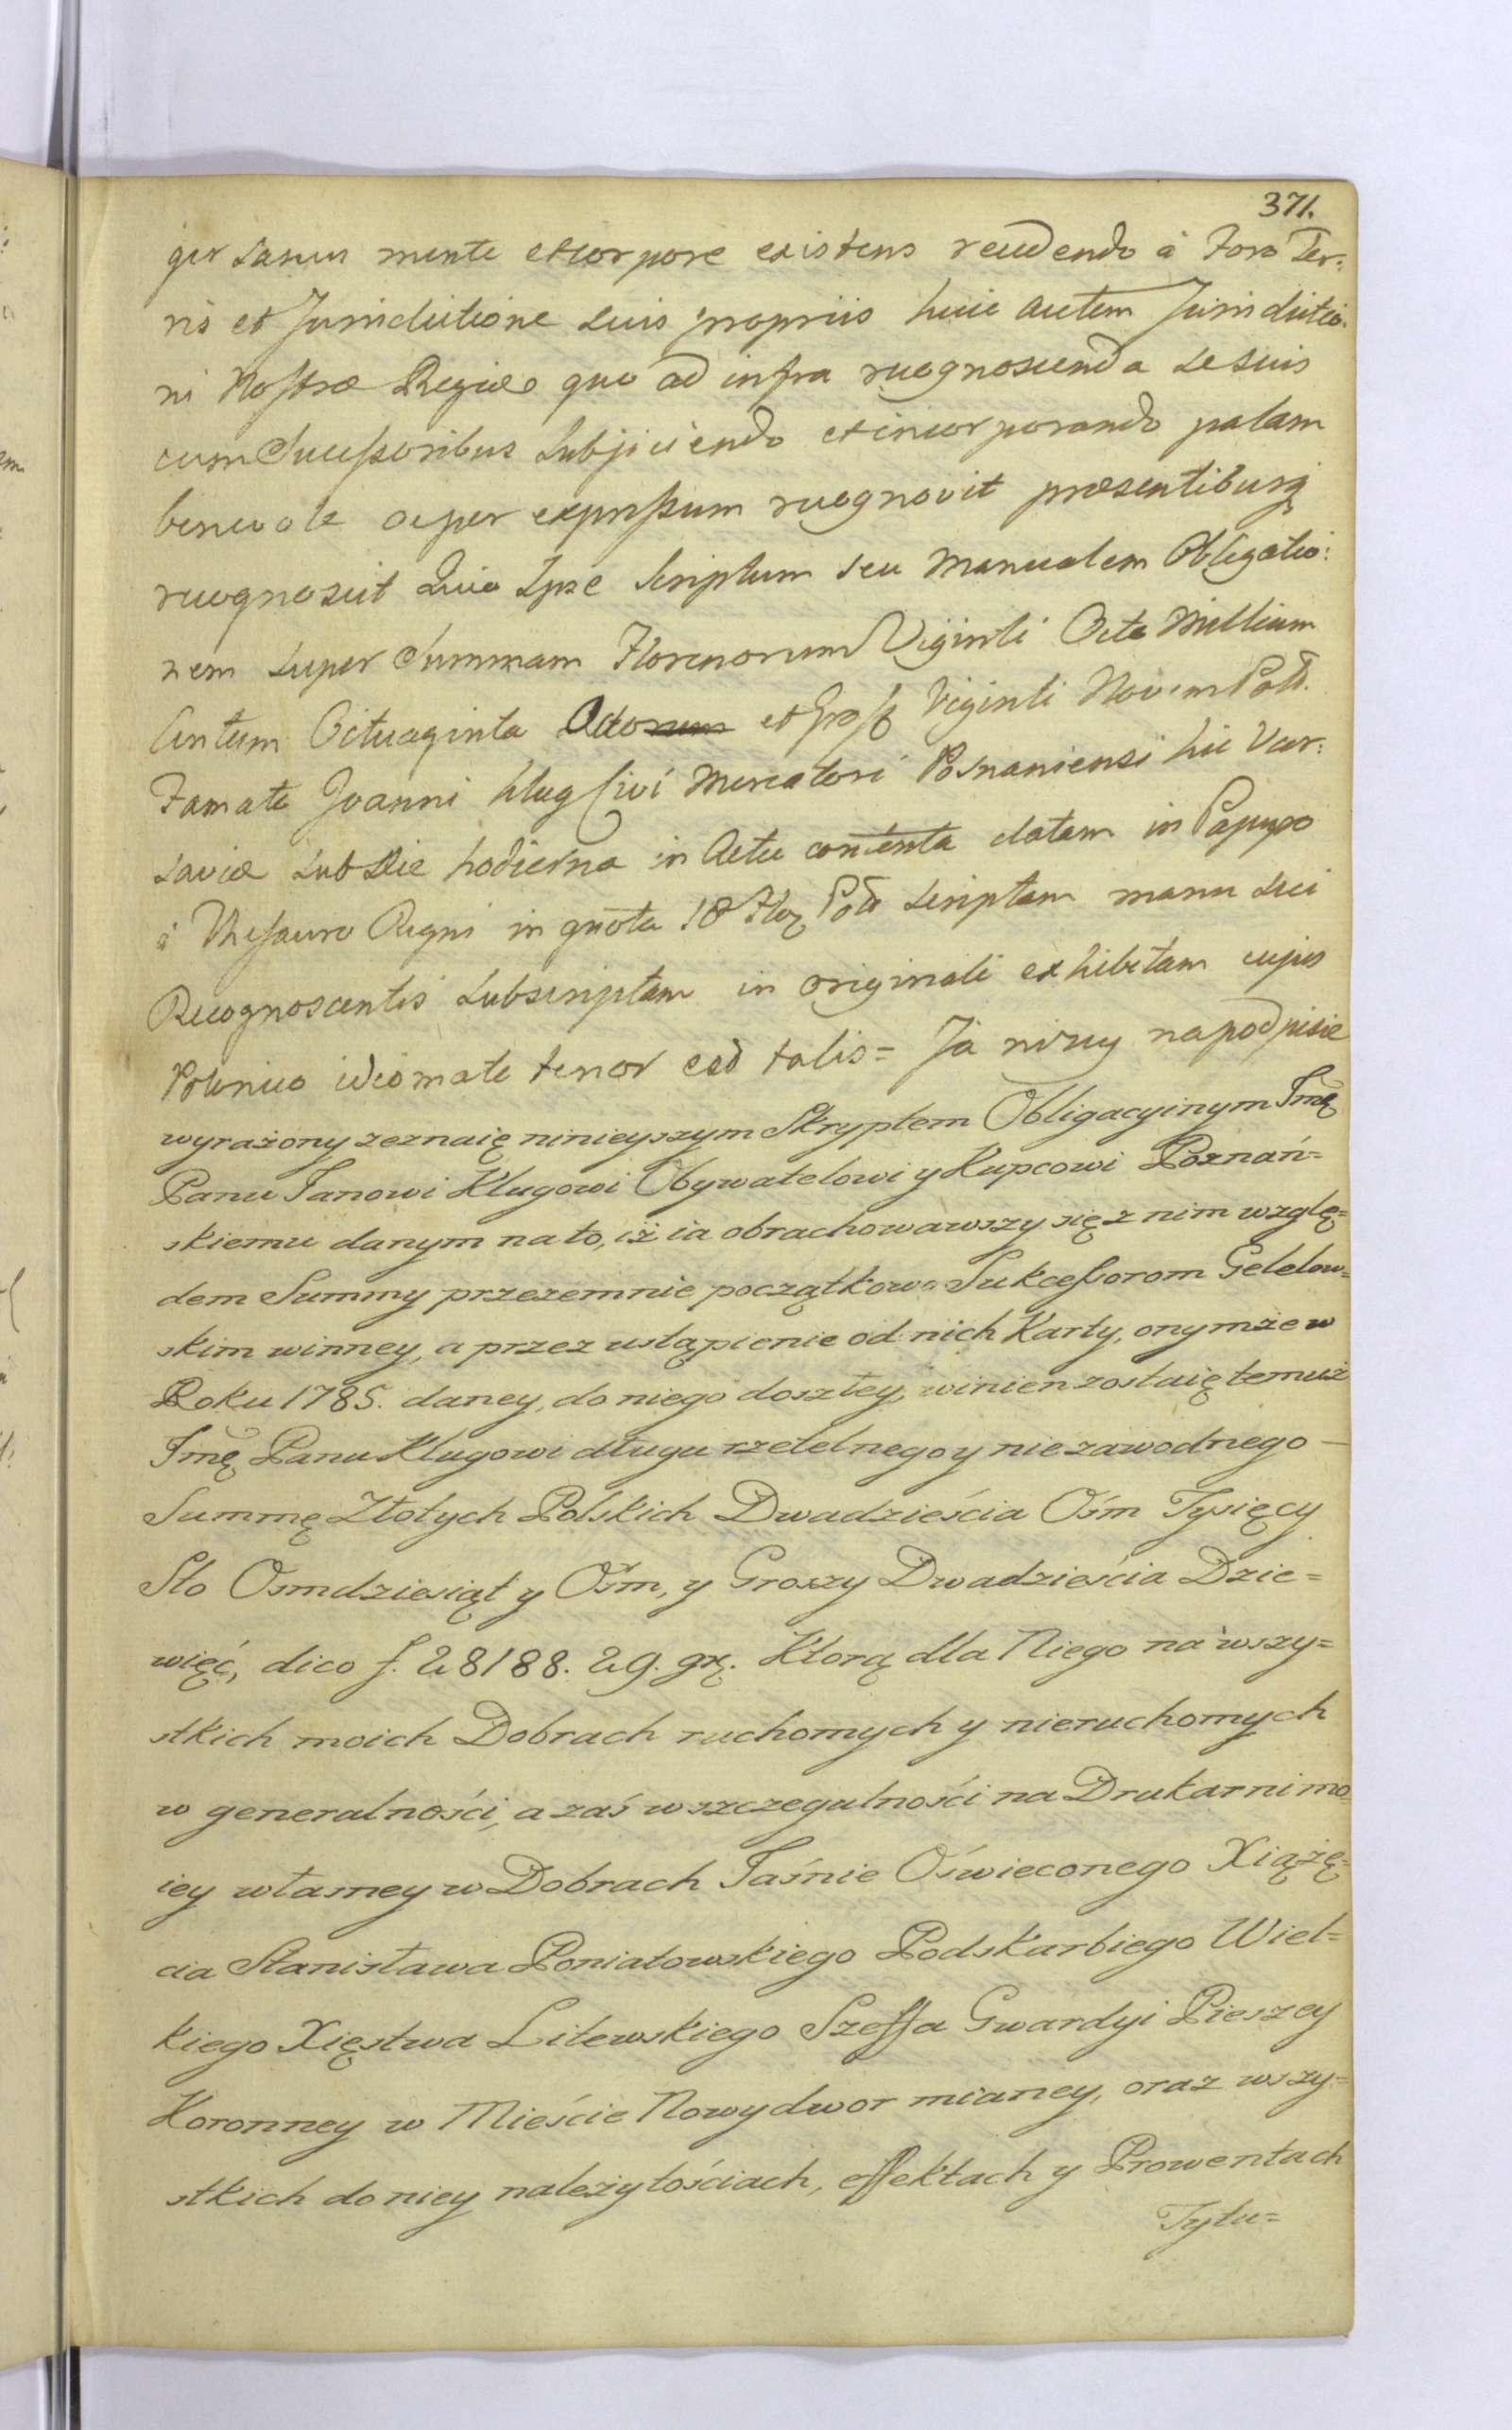 371.
ger sanus mente et corpore existens recedendo à Foro Ter:
ris et Jurisdictione suis propriis huic autem Jurisdictio:
ni Nostræ Regiæ quo ad infra recognoscenda se suis
cum Successoribus subjiciendo et incorporando palam
benevole ac per expressum recognovit præsentibusq
recognoscit Quia Ipse Scriptum seu Manualem Obligatio:
nem super Summam Florenorum Viginti Octo Millium
Centum Octuaginta Octo et Gross Viginti Novem Poll.
Famato Joanni Klug Civi Mercatori Posnaniensi hic Var:
saviæ sub Die hodierna in Actu contenta datam in Papyro
à Thesauro Regni in quota 18 Flor Poll scriptam manu sui
Recognoscentis subscriptam in originali exhibitam cujus
Polonico idiomate tenor est talis = Ja niżey na podpisie
wyrażony zeznaię ninieyszym Skryptem Obligacyinym Jmę
Panu Janowi Klugowi Obywatelowi y Kupcowi Poznań=
skiemu danym na to, iż ia obrachowawszy się z nim wzglę=
dem Summy przezemnie początkowo Sukcessorom Gelelow=
skim winney, a przez ustąpienie od nich Karty, onymże w
Roku 1785. daney, do niego doszłey, winien zostaię temuż
Jmę Panu Klugowi długu rzetelnego y niezawodnego —
Summę Złotych Polskich Dwadzieścia Ośm Tysięcy
Sto Osmdziesiąt y Ośm, y Groszy Dwadzieścia Dzie=
więć, dico f. 28188. 29. gr. Ktorą dla Niego na wszy=
stkich moich Dobrach ruchomych y nieruchomych
w generalności, a zaś w szczegulności na Drukarni mo=
iey własney w Dobrach Jaśnie Oświeconego Xiążę=
cia Stanisława Poniatowskiego Podskarbiego Wiel=
kiego Xięstwa Litewskiego Szeffa Gwardyi Pieszey
Koronney w Mieście Nowydwor mianey, oraz wszy=
stkich do niey należytościach, effektach y Prowentach
Tytu=